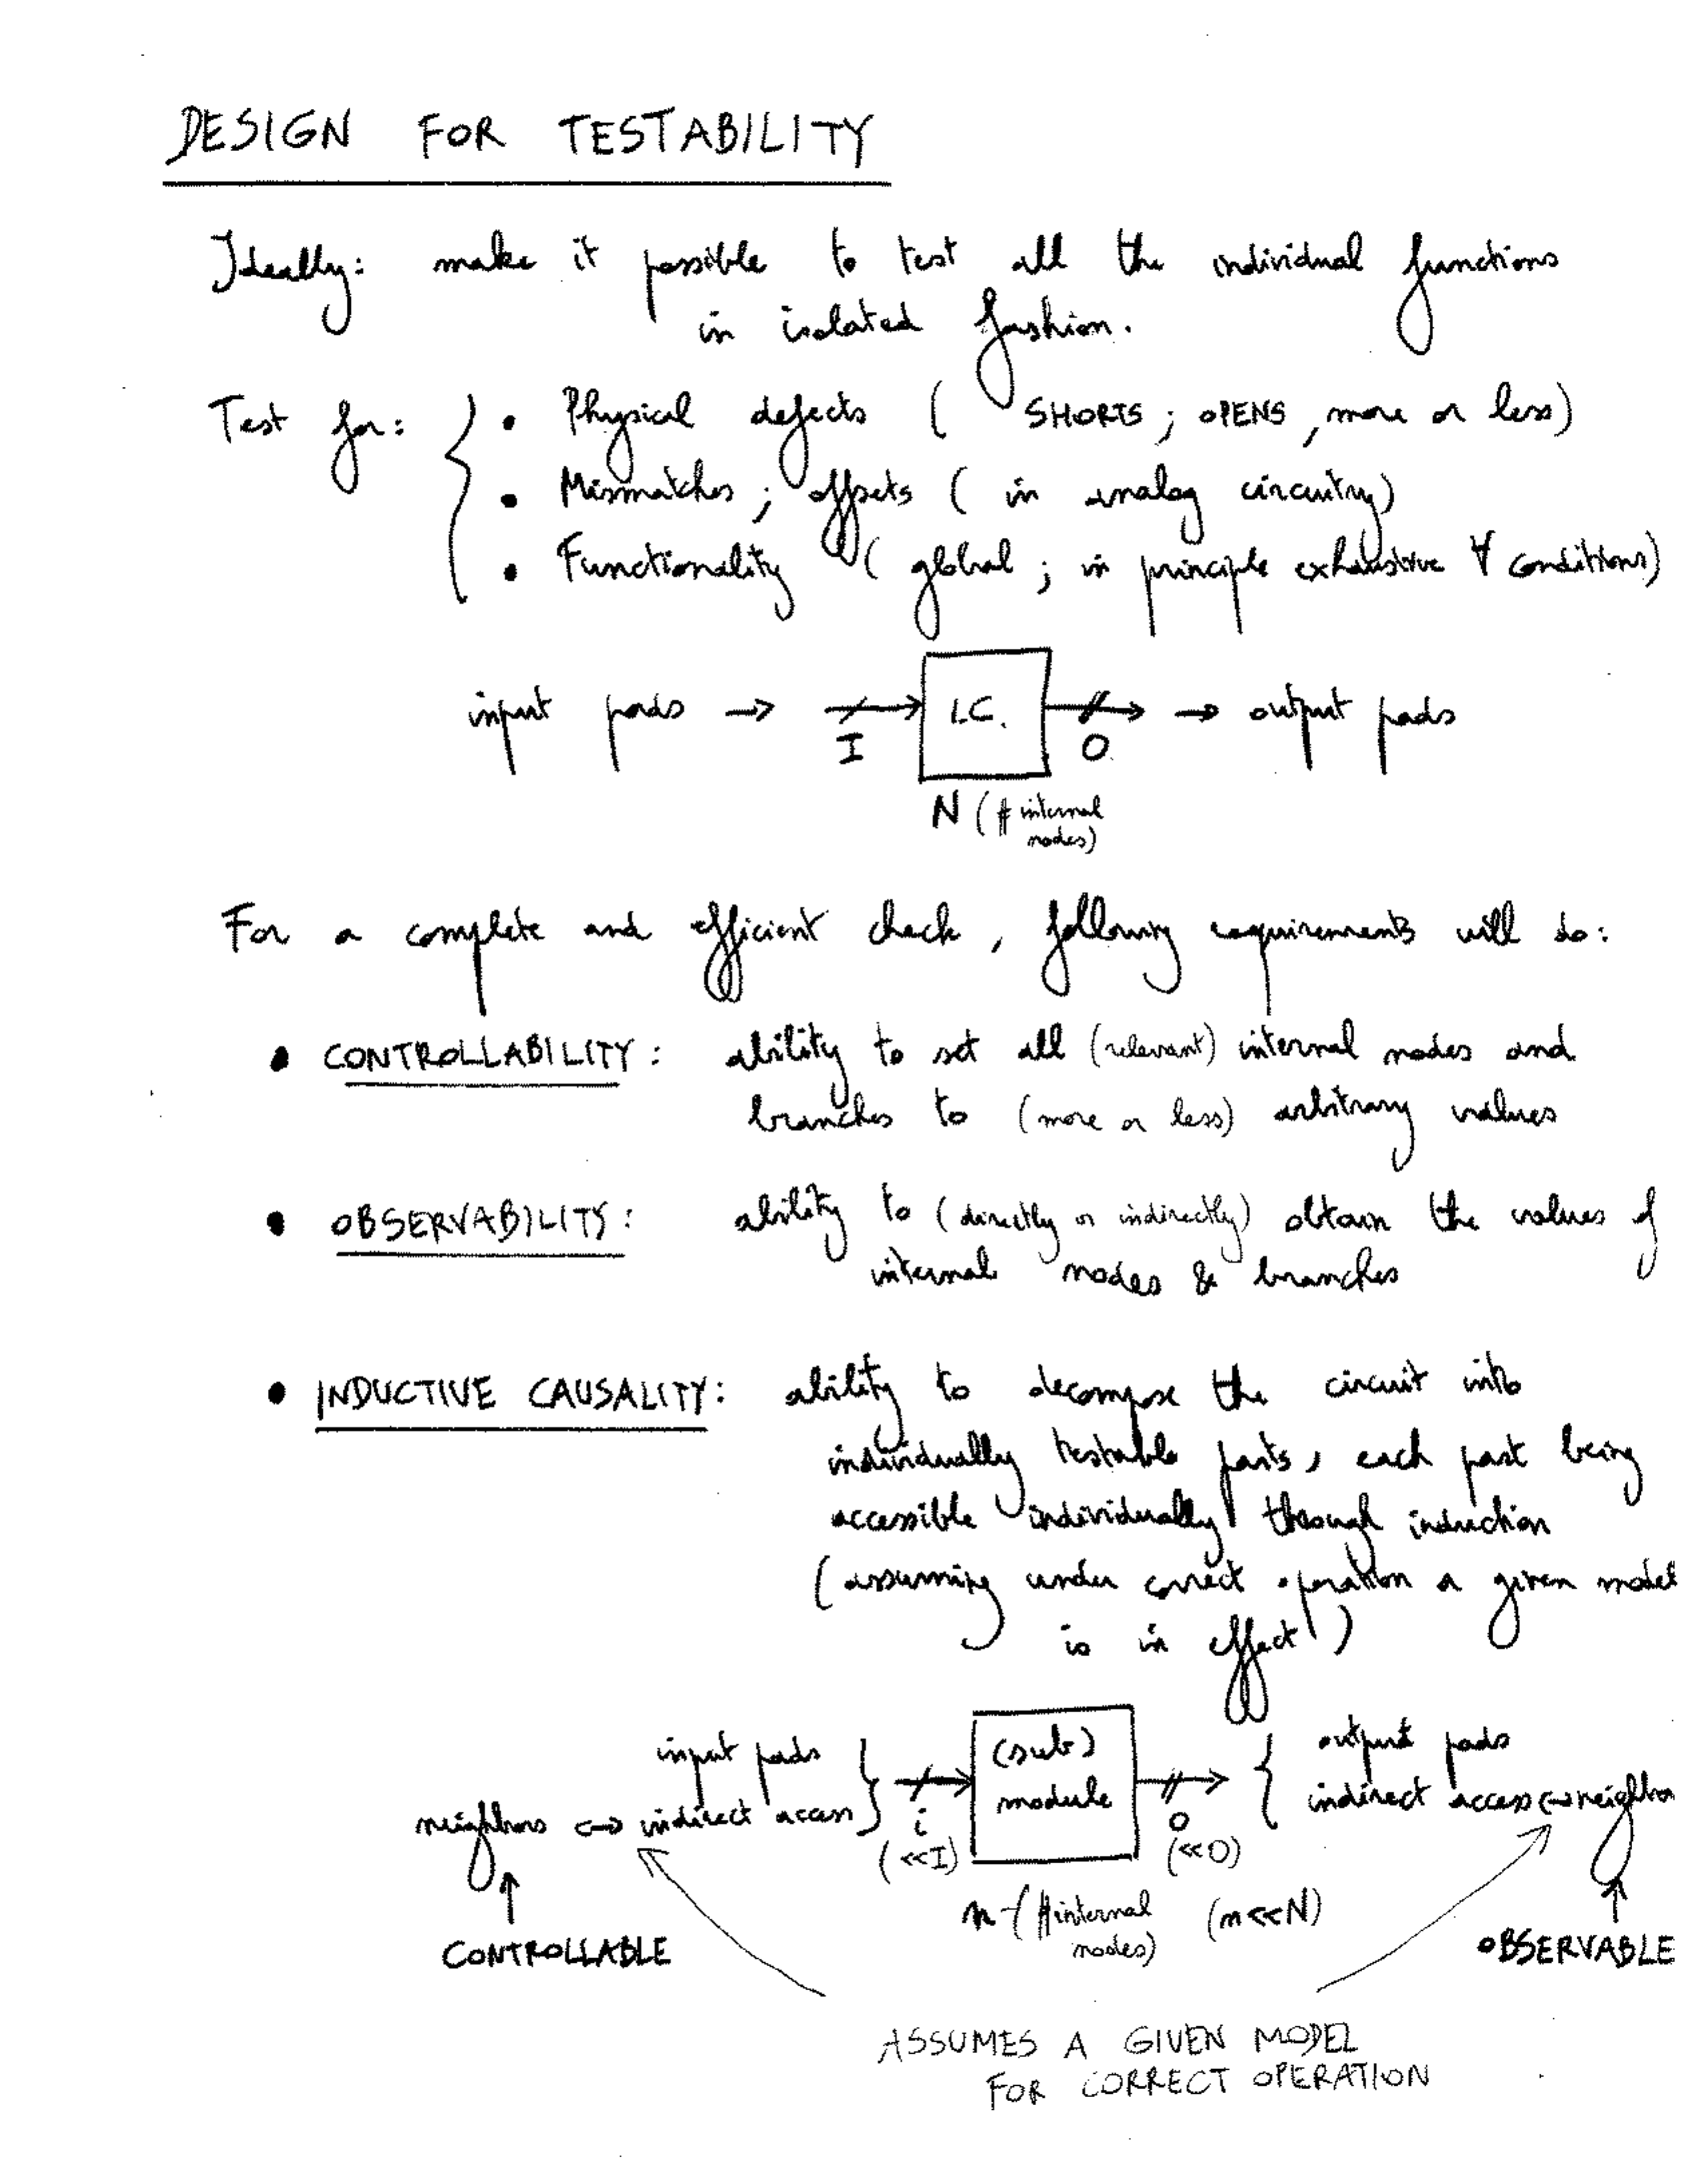 DESIGN FOR TESTABILITY
Ideally: make it possible to test all the individual functions
in isolated fashion.
Test for: { • Physical defects ( SHORTS ; OPENS , more or less)
• Mismatches ; offsets ( in analog circuitry)
• Functionality ( global ; in principle exhaustive ∀ conditions)
input pads → I I.C. O → output pads
N (# internal
nodes)
For a complete and efficient check , following requirements will do:
• CONTROLLABILITY : ability to set all (relevant) internal nodes and
branches to (more or less) arbitrary values
• OBSERVABILITY : ability to (directly or indirectly) obtain the values of
internal nodes & branches
• INDUCTIVE CAUSALITY: ability to decompose the circuit into
individually testable parts, each part being
accessible individually through induction
(assuming under correct operation a given model
is in effect)
input pads } (sub) { output pads
neighbors ↔ indirect access i module o indirect access ↔ neighbo
(<<I) (<<O)
n (# internal (n<<N)
nodes)
CONTROLLABLE OBSERVABLE
ASSUMES A GIVEN MODEL
FOR CORRECT OPERATION